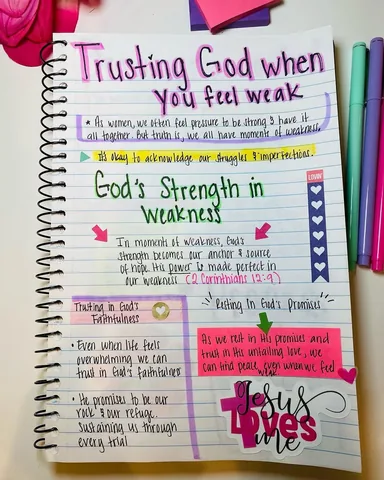 Trusting God when
you feel weak
* As women, we often feel pressure to be strong & have it
all together. But truth is, we all have moments of weakness.
It's okay to acknowledge our struggles & imperfections.
God's Strength in
Weakness
In moments of weakness, God's
strength becomes our anchor & source
of hope. His power is made perfect in
our weakness (2 Corinthians 12:9)
Trusting in God's
Faithfulness
• Even when life feels
overwhelming we can
trust in God's faithfulness
• He promises to be our
rock & our refuge.
Sustaining us through
every trial
Resting In God's Promises
As we rest in His promises and
trust in His unfailing love, we
can find peace, even when we feel
weak.
Jesus
Loves
me